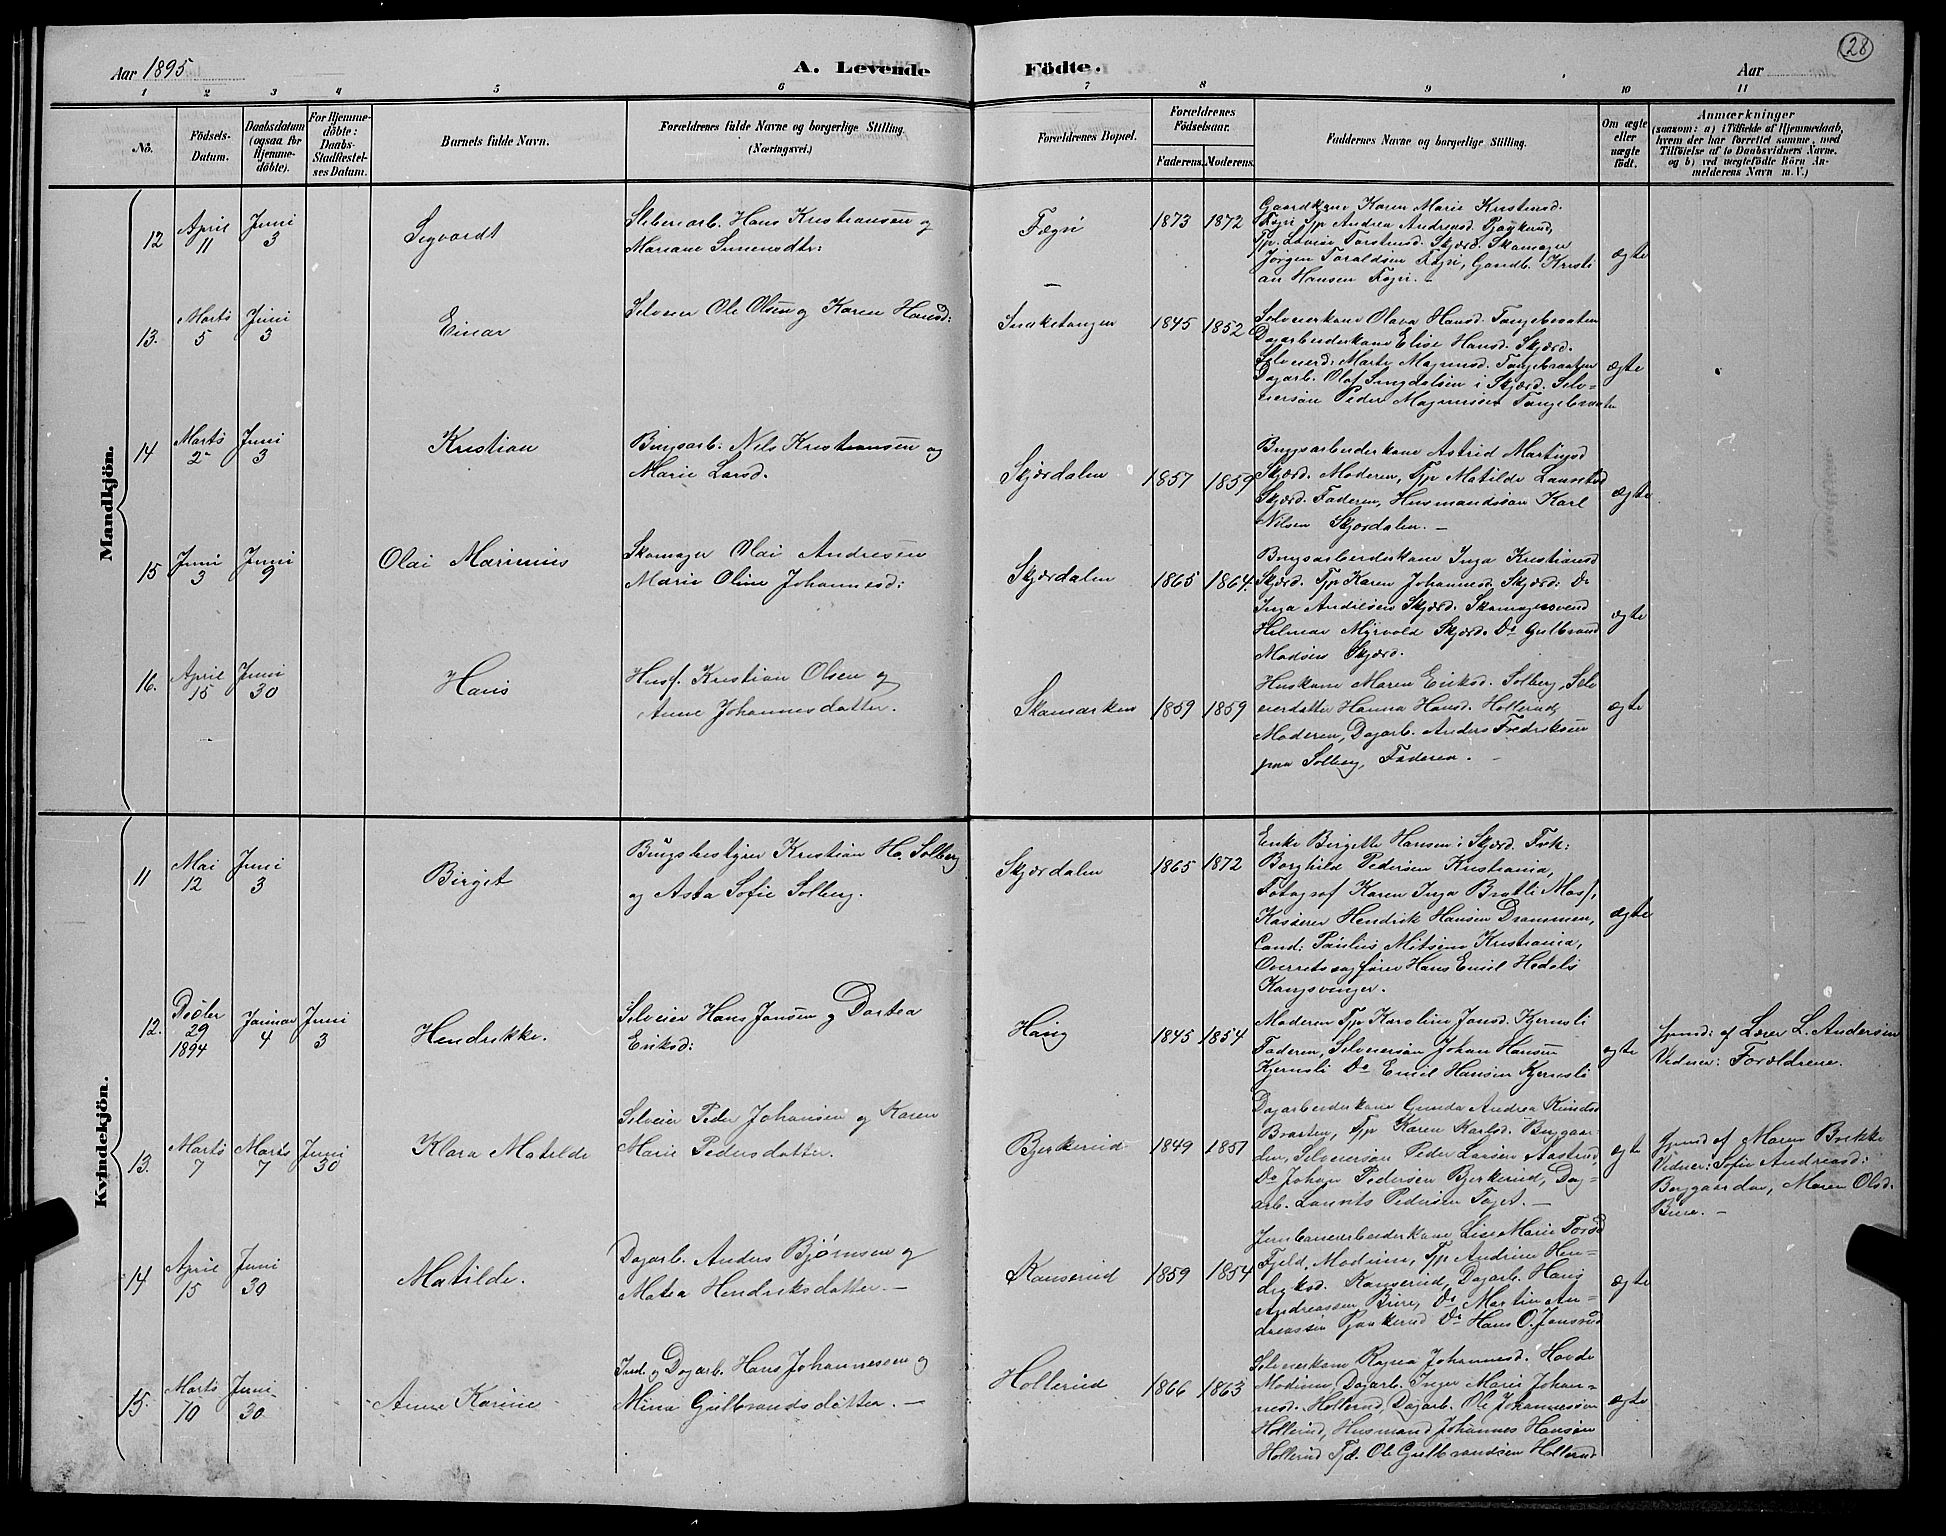 Aar 1895
A. Levende Födte.
Aar
28
1 2 3 4 5 6 7 8 9 10 11
No.
Födsels-
Datum.
Daabsdatum
(ogsaa for
Hjemme-
döbte).
For Hjemme-
döbte:
Daabs-
Stadfestel-
ses Datum.
Barnets fulde Navn.
Forældrenes fulde Navne og borgerlige Stilling.
(Næringsvei.)
Forældrenes Bopæl.
Forældrenes
Födselsaar.
Faderens. Moderens.
Faddernes Navne og borgerlige Stilling.
Om ægte
eller
uægte
födt.
Anmærkninger
(saasom: a) i Tilfælde af Hjemmedaab,
hvem der har forrettet samme, med
Tilföielse af to Daabsvidners Navne.
og b) ved uægtefödte Börn An-
melderens Navn m. V.)
Mandkjön.
12
April
11
Juni
3
Sigvardt
Sliberiarb. Hans Kristiansen og
Mariane
Fægri
1873 1872
Gaardkone Karen Marie Kristensd.
Fægri Tjp Andrea Andreasd.
Tjp. Lovise Torstensd. Skjærd. Skomager
Jörgen Toraldsen Fægri, Gaardb. Kristi
an Hansen Fægri. –
ægte
13.
Marts
5
Juni
3
Einar
Selveier Ole Olsen og Karen Hansd:
Snaketangen
1845 1852
Selveierkone Olava Hansd. Tangebraaten
Dagarbeiderkone Elise Hansd. Skjærd.
Selveierd: Marte Magnusd. Tangebraaten
Dagarb. Olaf Syngdalsen i Skjærd. Selv-
eiersön Peder Magnusen Tangebraaten
ægte
14
Marts
2
Juni
3
Kristian
Brugsarb. Nils Kristiansen og
Marie Larsd.
Skjærdalen
1857 1859
Brugsarbeiderkone Astrid Martinsd
Skjærd. Moderen, Tjp Matilde
Skjærd. Faderen, Husmandssön Karl
Nilsen Skjærdalen. –
ægte
15
Juni
3
Juni
9
Olai Marinius
Skomager Olai Andresen
Marie Oline Johannesd:
Skjærdalen
1865 1864.
Brugsarbeiderkone Inga Kristiansd
Skjærd. Tjp Karen Johannesd. Skjærd: Do
Inga Andresen Skjærd. Skomagersvend
Helmar Myrvold Skjærd. Do Gulbrand
Madsen Skjærd.
ægte
16.
April
15
Juni
30
Hans
Husf. Kristian Olsen og
Anne Johannesdatter.
Skamarken
1859 1859
Huskone Maren Eriksd. Solberg, Selv
eierdatter Hanna Hansd. Hollerud,
Moderen, Dagarb. Anders Fredriksen
paa Solberg, Faderen. –
ægte
Kvindekjön.
11
Mai
12
Juni
3
Birget
Brugsbestyrer Kristian H. Solberg
og Asta Sofie Solberg.
Skjærdalen
1865 1872
Enke Birgette Hansen i Skjærd. Frk:
Borghild Pedersen Kristiania,
Fotograf Karen Inga Bratli Mosf,
Kasserer Hendrik Hansen Drammen,
Cand: Paulus Kristiania,
Overretssagförer Hans Emil
Kongsvinger.
ægte
12.
Decbr
29
1894
Januar
4
Juni
3
Hendrikke.
Selveier Hans Jansen og Dortea
Eriksd:
Haug
1845 1854
Moderen Tjp Karoline Jansd. Kjernsli
Faderen, Selveiersön Johan Hansen
Kjernsli Do Emil Hansen Kjernsli
ægte
hjemd: af Lærer L. Andersen
Vidner: Forældrene.
13.
Marts
7
Marts
7
Juni
30
Klara Matilde
Selveier Peder Johansen og Karen
Marie Pedersdatter.
Bjerkerud
1849 1851
Dagarbeiderkone Gunda Andrea Knudsd
Braaten, Tjp Karen Karlsd. Borgaar-
den, Selveiersön Peder Larsen Aasterud,
Do Johan Pedersen Bjerkerud, Dag-
arb. Laurits Pedersen Taget. –
ægte
hjemd af Maren Brekke
Vidner: Sofie Andreasd:
Borgaarden, Maren Olsd.
Brere. –
14
April
15
Juni
30
Matilde.
Dagarb. Anders Bjørnsen og
Matea Hendriksdatter. –
Kanserud
1859 1854
Jernbanearbeiderkone Lise Marie Torsd
Fjeld, Modum, Tjp Andrine Hen-
driksd. Kanserud, Dagarb. Hans
Andreassen Brere, Do Martin An-
dreassen Do Hans O. Jonsrud
ægte
15.
Marts
10
Juni
30
Anne Karine
Ind. og Dagarb. Hans Johannessen og
Mina Gulbrandsdatter. –
Hollerud
1866 1863
Selveierkone Ragna Johannesd. Hovde
Modum, Dagarb. Inger Marie Johan-
nesd. Hollerud, Dagarb. Ole Johannessen
Hollerud, Husmand Johannes Hansen
Hollerud Tjd. Ole Gulbrandsen Hollerud
ægte